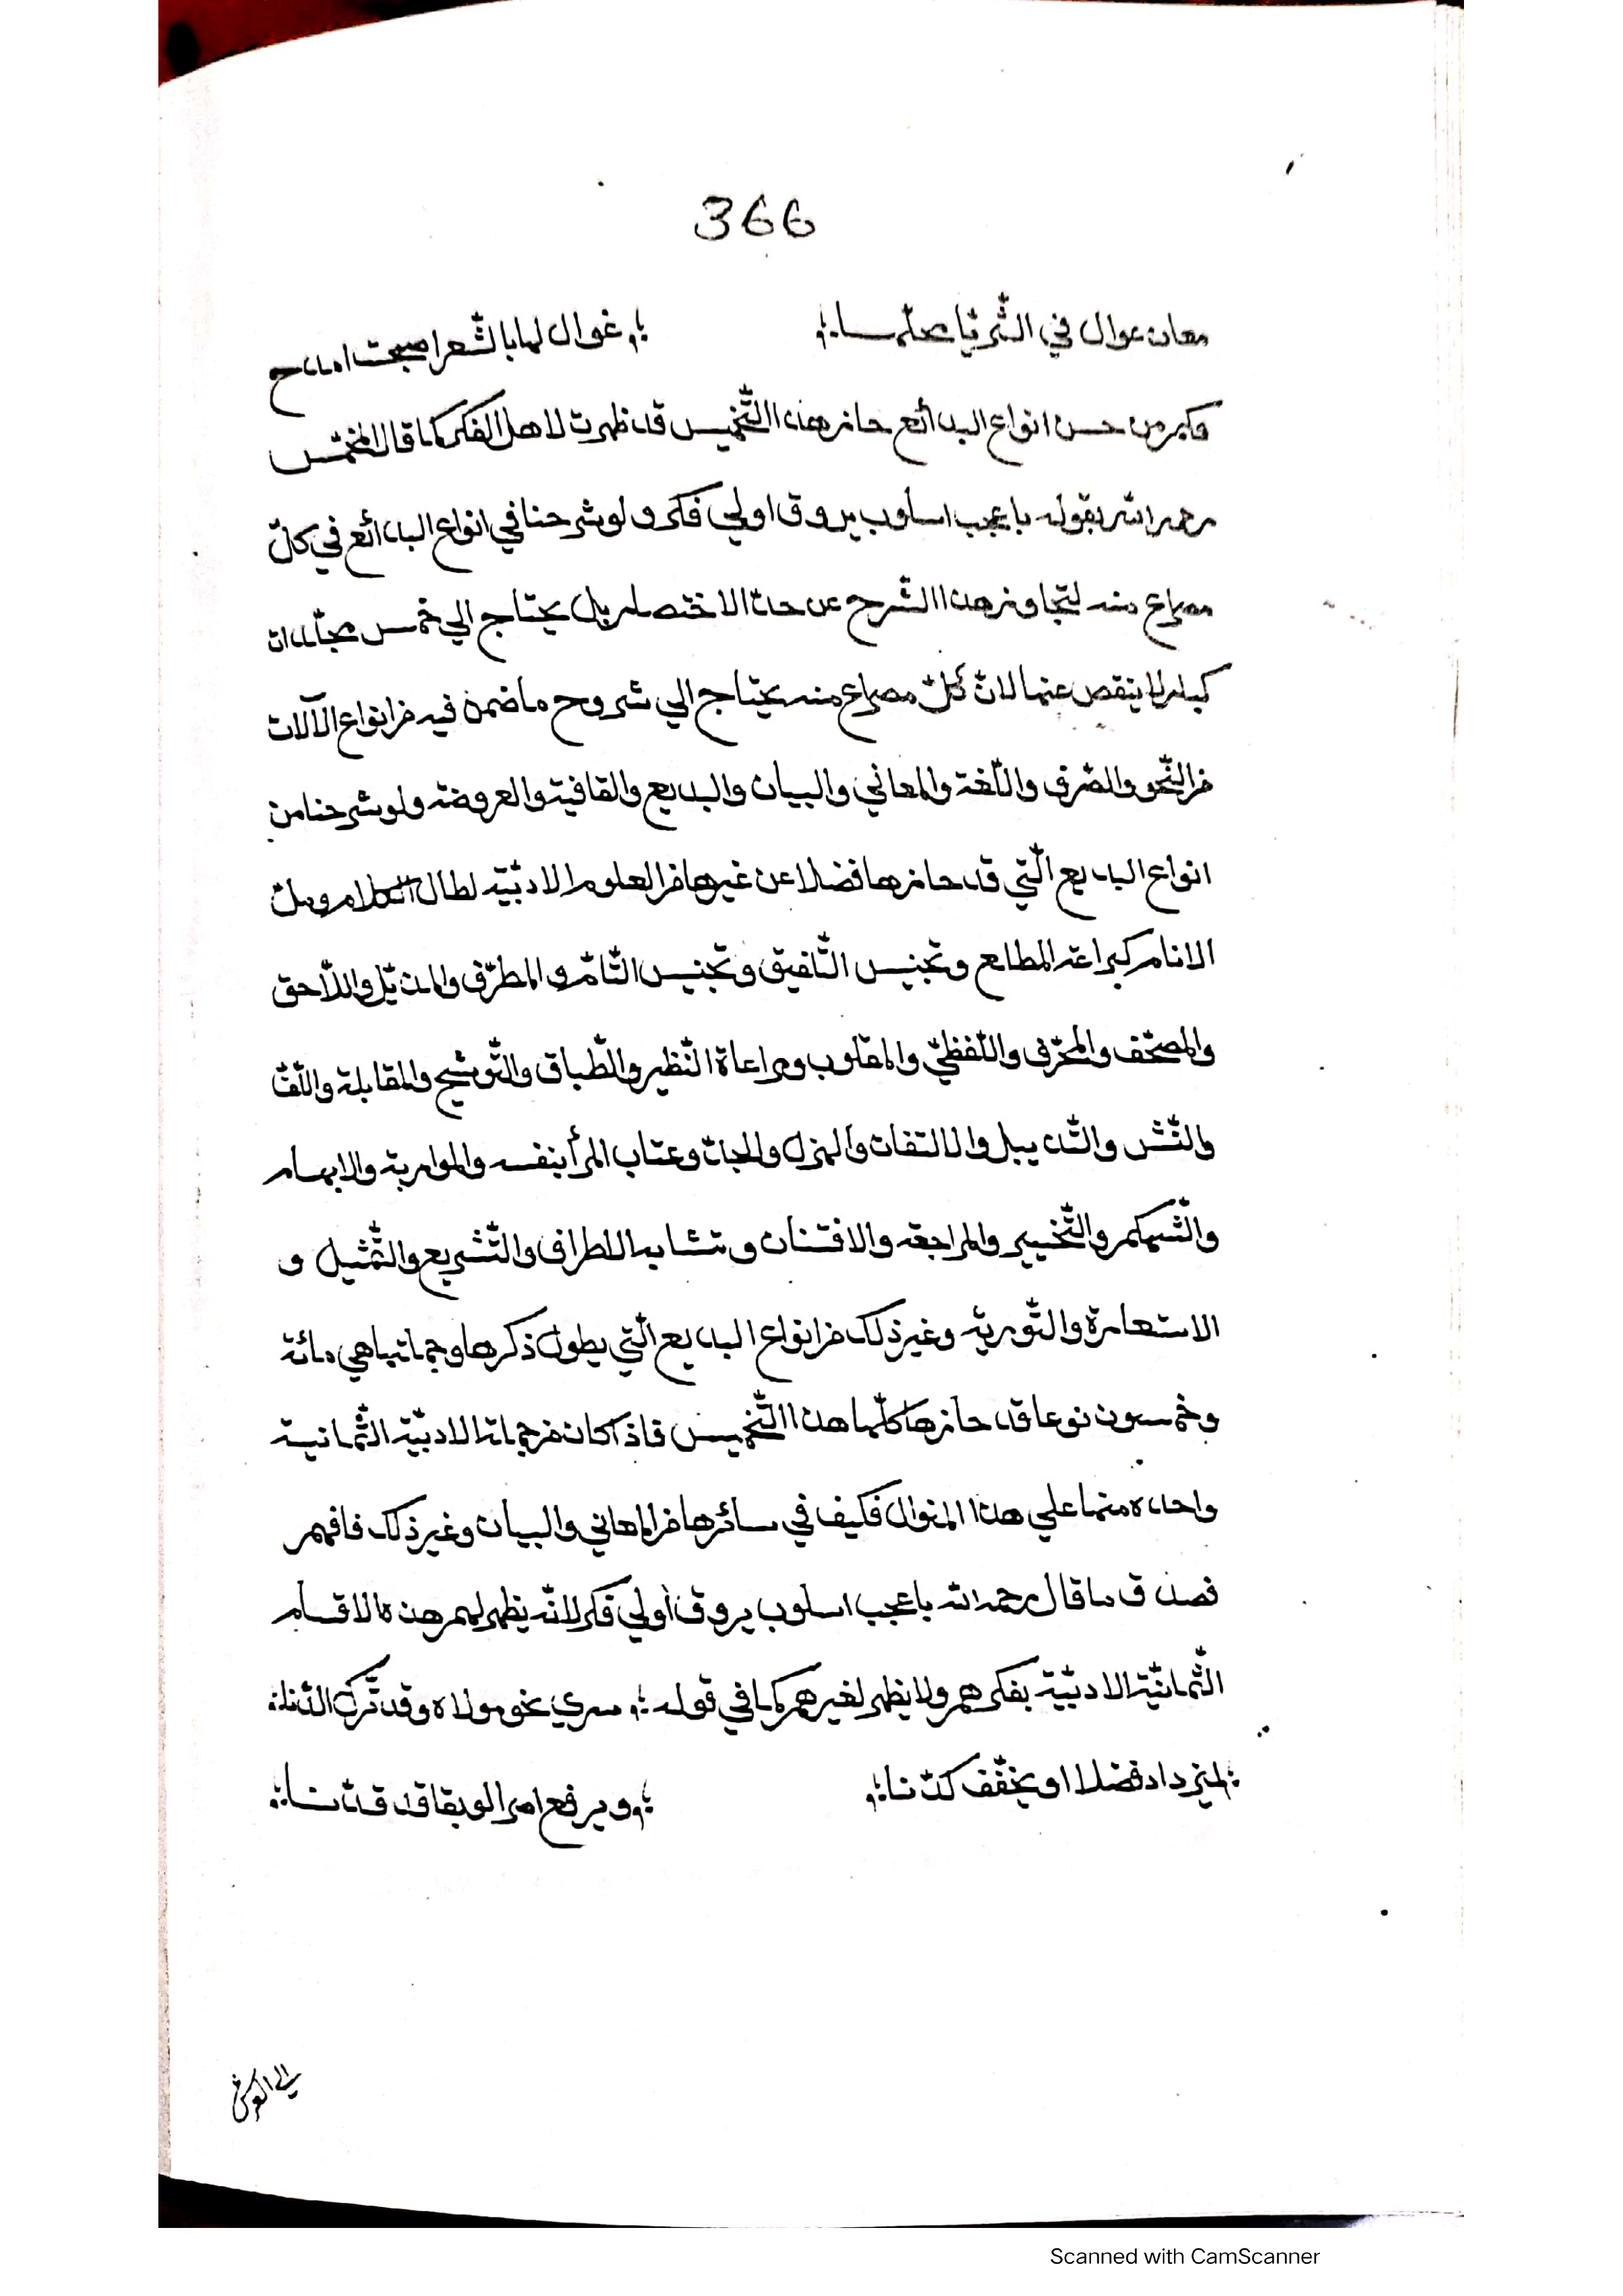 366
معان عوال في الثّريّا محلّها ؛ ؛ غوال لها بالشّعر اصبحت امدح
فكم من حسن انواع البدائع حاز هذا التّخميس قد ظهرت لاهل الفكر كما قال المخمّس
رحمه الله بقوله باعجب اسلوب يروق اولي فكر ولو شرحنا في انواع البدائع في كلّ
مصراع منه لتجاوز هذا الشّرح عن حدّ الاختصار بل يحتاج الي خمس مجلّدات
كبار لا ينقص عنها لانّ كلّ مصراع منه يحتاج الي شروح ما ضمن فيه من انواع الآلات
من النّحو والصّرف واللّغة والمعاني والبيان والبديع والقافية والعروضة ولو شرحنا من
انواع البديع الّتي قد حازها فضلا عن غيرها من العلوم الادبيّة لطال الكلام وملّ
الانام كبراعة المطالع وتجنيس التّلفيق وتجنيس التّامّ والمطرّف والمذيّل واللّاحق
والمصحّف والمحرّف واللّفظيّ والمقلوب ومراعاة النّظير والطّباق والتّوشيح والمقابلة واللّفّ
والنّشر والتّذييل والالتفات والهزل والجدّ وعتاب المرأ بنفسه والمواربة والابهام
والتّهكم والتّخيير والمراجعة والافتنان وتشابه الاطراف والتّشريع والتّمثيل و
الاستعارة والتّورية وغير ذلك من انواع البديع الّتي يطول ذكرها وجملتها هي مائة
وخمسون نوعا قد حازها كلّها هذا التّخميس فاذا كان من جملة الادبيّة الثّمانية
واحدة منها علي هذا المنوال فكيف في سائرها من المعاني والبيان وغير ذلك فافهم
فصدق ما قال رحمه الله باعجب اسلوب يروق أولي فكر لانّه يظهر لهم هذه الاقسام
الثّمانيّة الادبيّة بفكرهم ولا يظهر لغيرهم كما في قوله ؛ سري نحو مولاه وقد ترك الدّنا ؛
؛ ليزداد فضلا او يخفّف كدّنا ؛ ؛ ويرفع امر الوبقا قد قدّنا ؛
Scanned with CamScanner